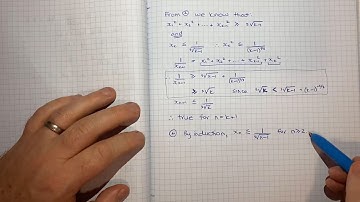 From ④ we know that
x₁² + x₂² + ... + xₖ² ≥ ³√k-1
and
xₖ ≤ 1/³√k-1 ∴ xₖ² ≤ 1/(k-1)^2/3
1/xₖ₊₁ = x₁² + x₂² + ... + xₖ₋₁² + xₖ²
1/xₖ₊₁ ≥ ³√k-1 + 1/(k-1)^2/3
≥ ³√k since ³√k < ³√k-1 + (k-1)^-2/3
xₖ₊₁ ≤ 1/³√k
∴ true for n=k+1
By induction, xₙ ≤ 1/³√n-1 for n≥2